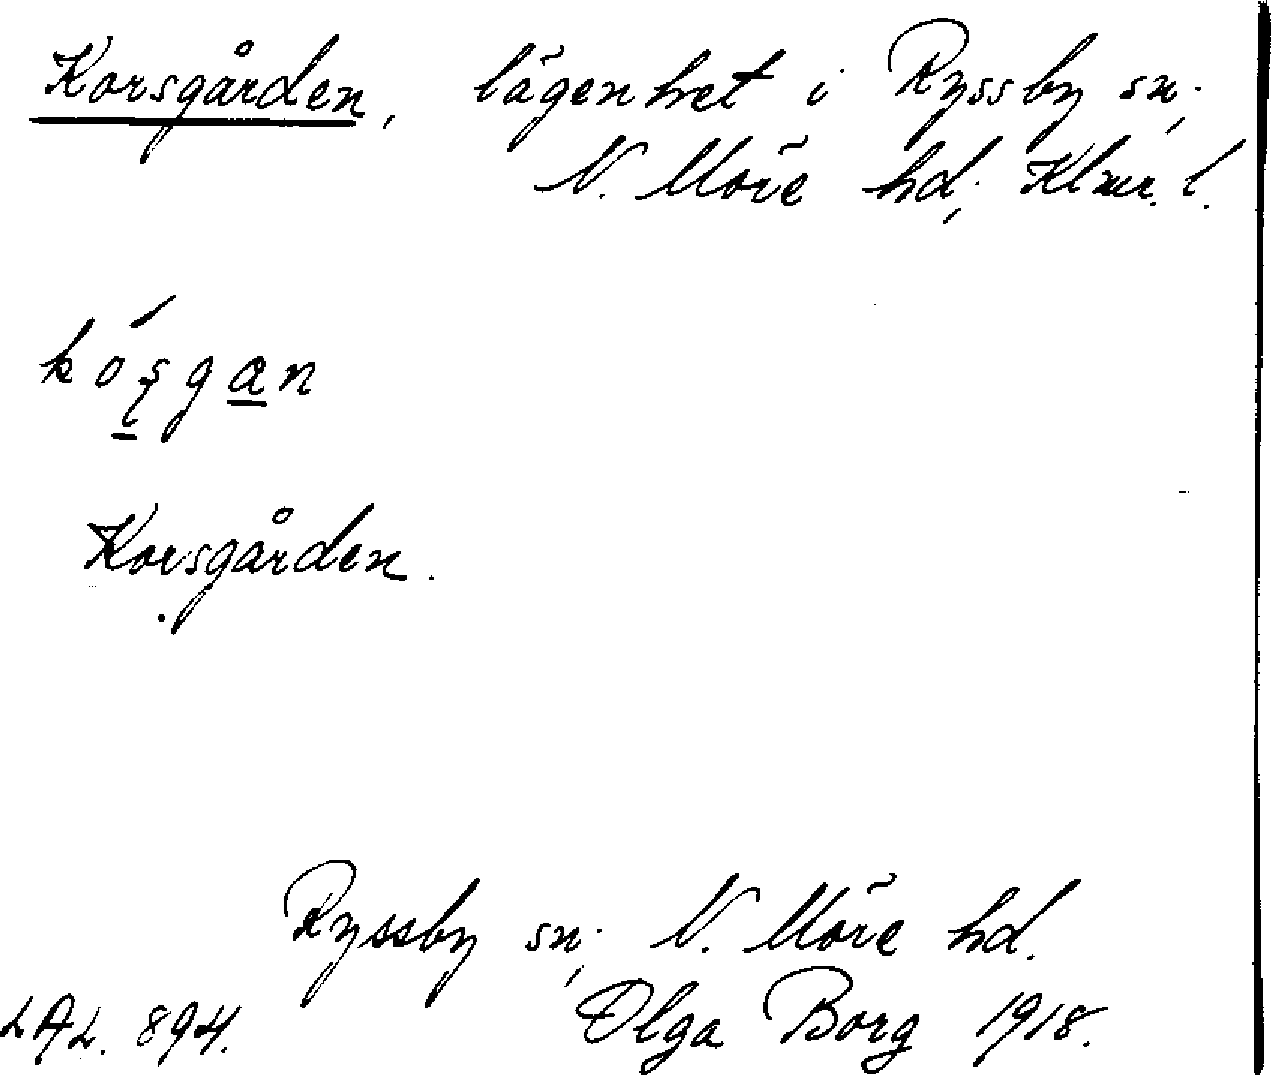 Korsgården, lägenhet i Ryssby sn.,
N. Möre hd., Klmr. l.
kóʂgan
Korsgården.
Ryssby sn., N. Möre hd.
LAL. 894. Olga Borg 1918.